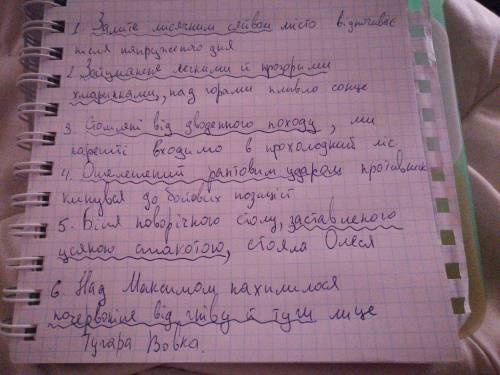 1. Залите місячним сяйвом місто відпочиває
після напруженого дня
2. Затуманене легкими й прозорими
хмаринками, над горами пливло сонце
3. Стомлені від дводенного походу, ми
нарешті входимо в прохолодний ліс.
4. Ошелешений раптовим ударом противник
кинувся до бойових позицій
5. Біля новорічного столу, заставленого
усякою смакотою, стояла Олеся
6. Над Максимом нахилилося
почервоніле від гніву й туги лице
Тугара Вовка.